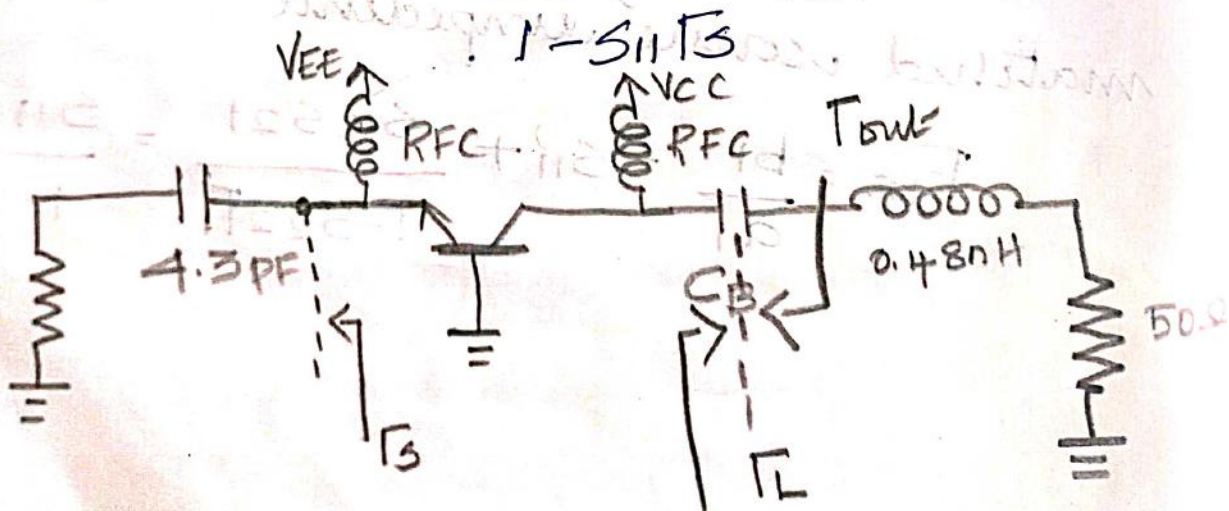 1 - S11 Γs
VEE
VCC
RFC
RFC
Γout
4.3 pF
0.48nH
CB
50Ω
Γs
ΓL